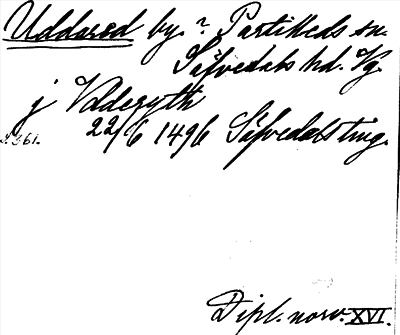 Uddared by. ? Partilleds sn.
Säfvedals hd. Vg.
j Vddegyth
22/6 1496 Säfvedals ting.
s. 361.
Dipl. norv. XVI.